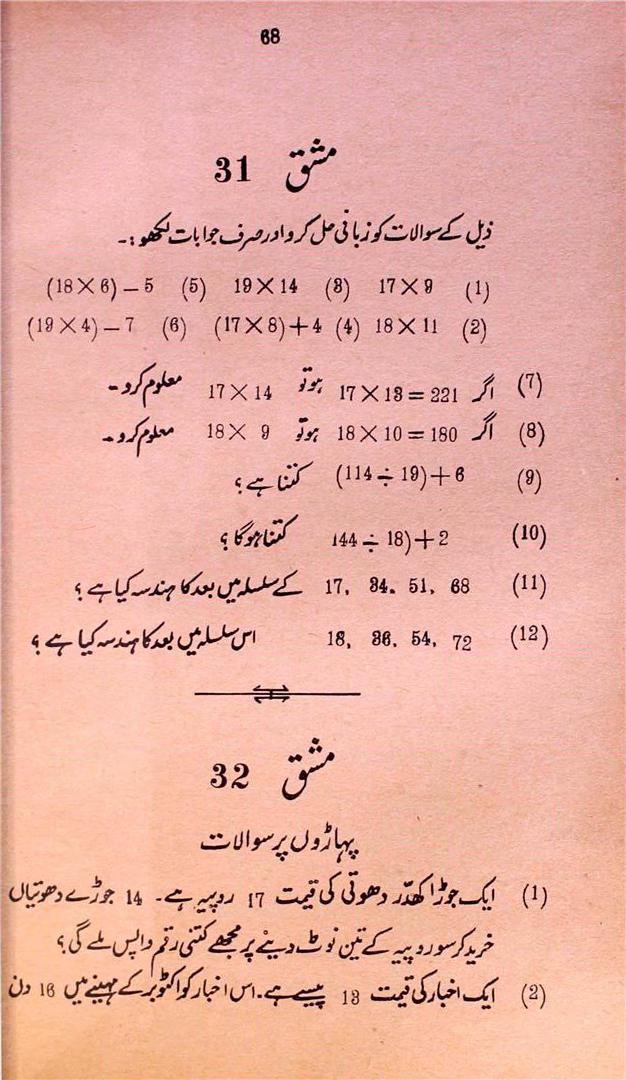 68
مشق 31
ذیل کے سوالات کو زبانی حل کرو اور صرف جوابات لکھو :۔
(1) 17×9 (3) 19×14 (5) (18×6)−5
(2) 18×11 (4) (17×8)+4 (6) (19×4)−7
(7) اگر 17×13=221 ہو تو 17×14 معلوم کرو ۔
(8) اگر 18×10=180 ہو تو 18× 9 معلوم کرو ۔
(9) (114÷19)+6 کتنا ہے ؟
(10) 144÷18)+2 کتنا ہوگا ؟
(11) 17, 34. 51, 68 کے سلسلہ میں بعد کا ہندسہ کیا ہے ؟
(12) 18, 36, 54, 72 اس سلسلہ میں بعد کا ہندسہ کیا ہے ؟
مشق 32
پہاڑوں پر سوالات
(1) ایک جوڑا کھدّر دھوتی کی قیمت 17 روپیہ ہے۔ 14 جوڑے دھوتیاں
خرید کر سو روپیہ کے تین نوٹ دینے پر مجھے کتنی رقم واپس ملے گی ؟
(2) ایک اخبار کی قیمت 13 پیسے ہے۔ اس اخبار کو اکٹوبر کے مہینے میں 16 دن